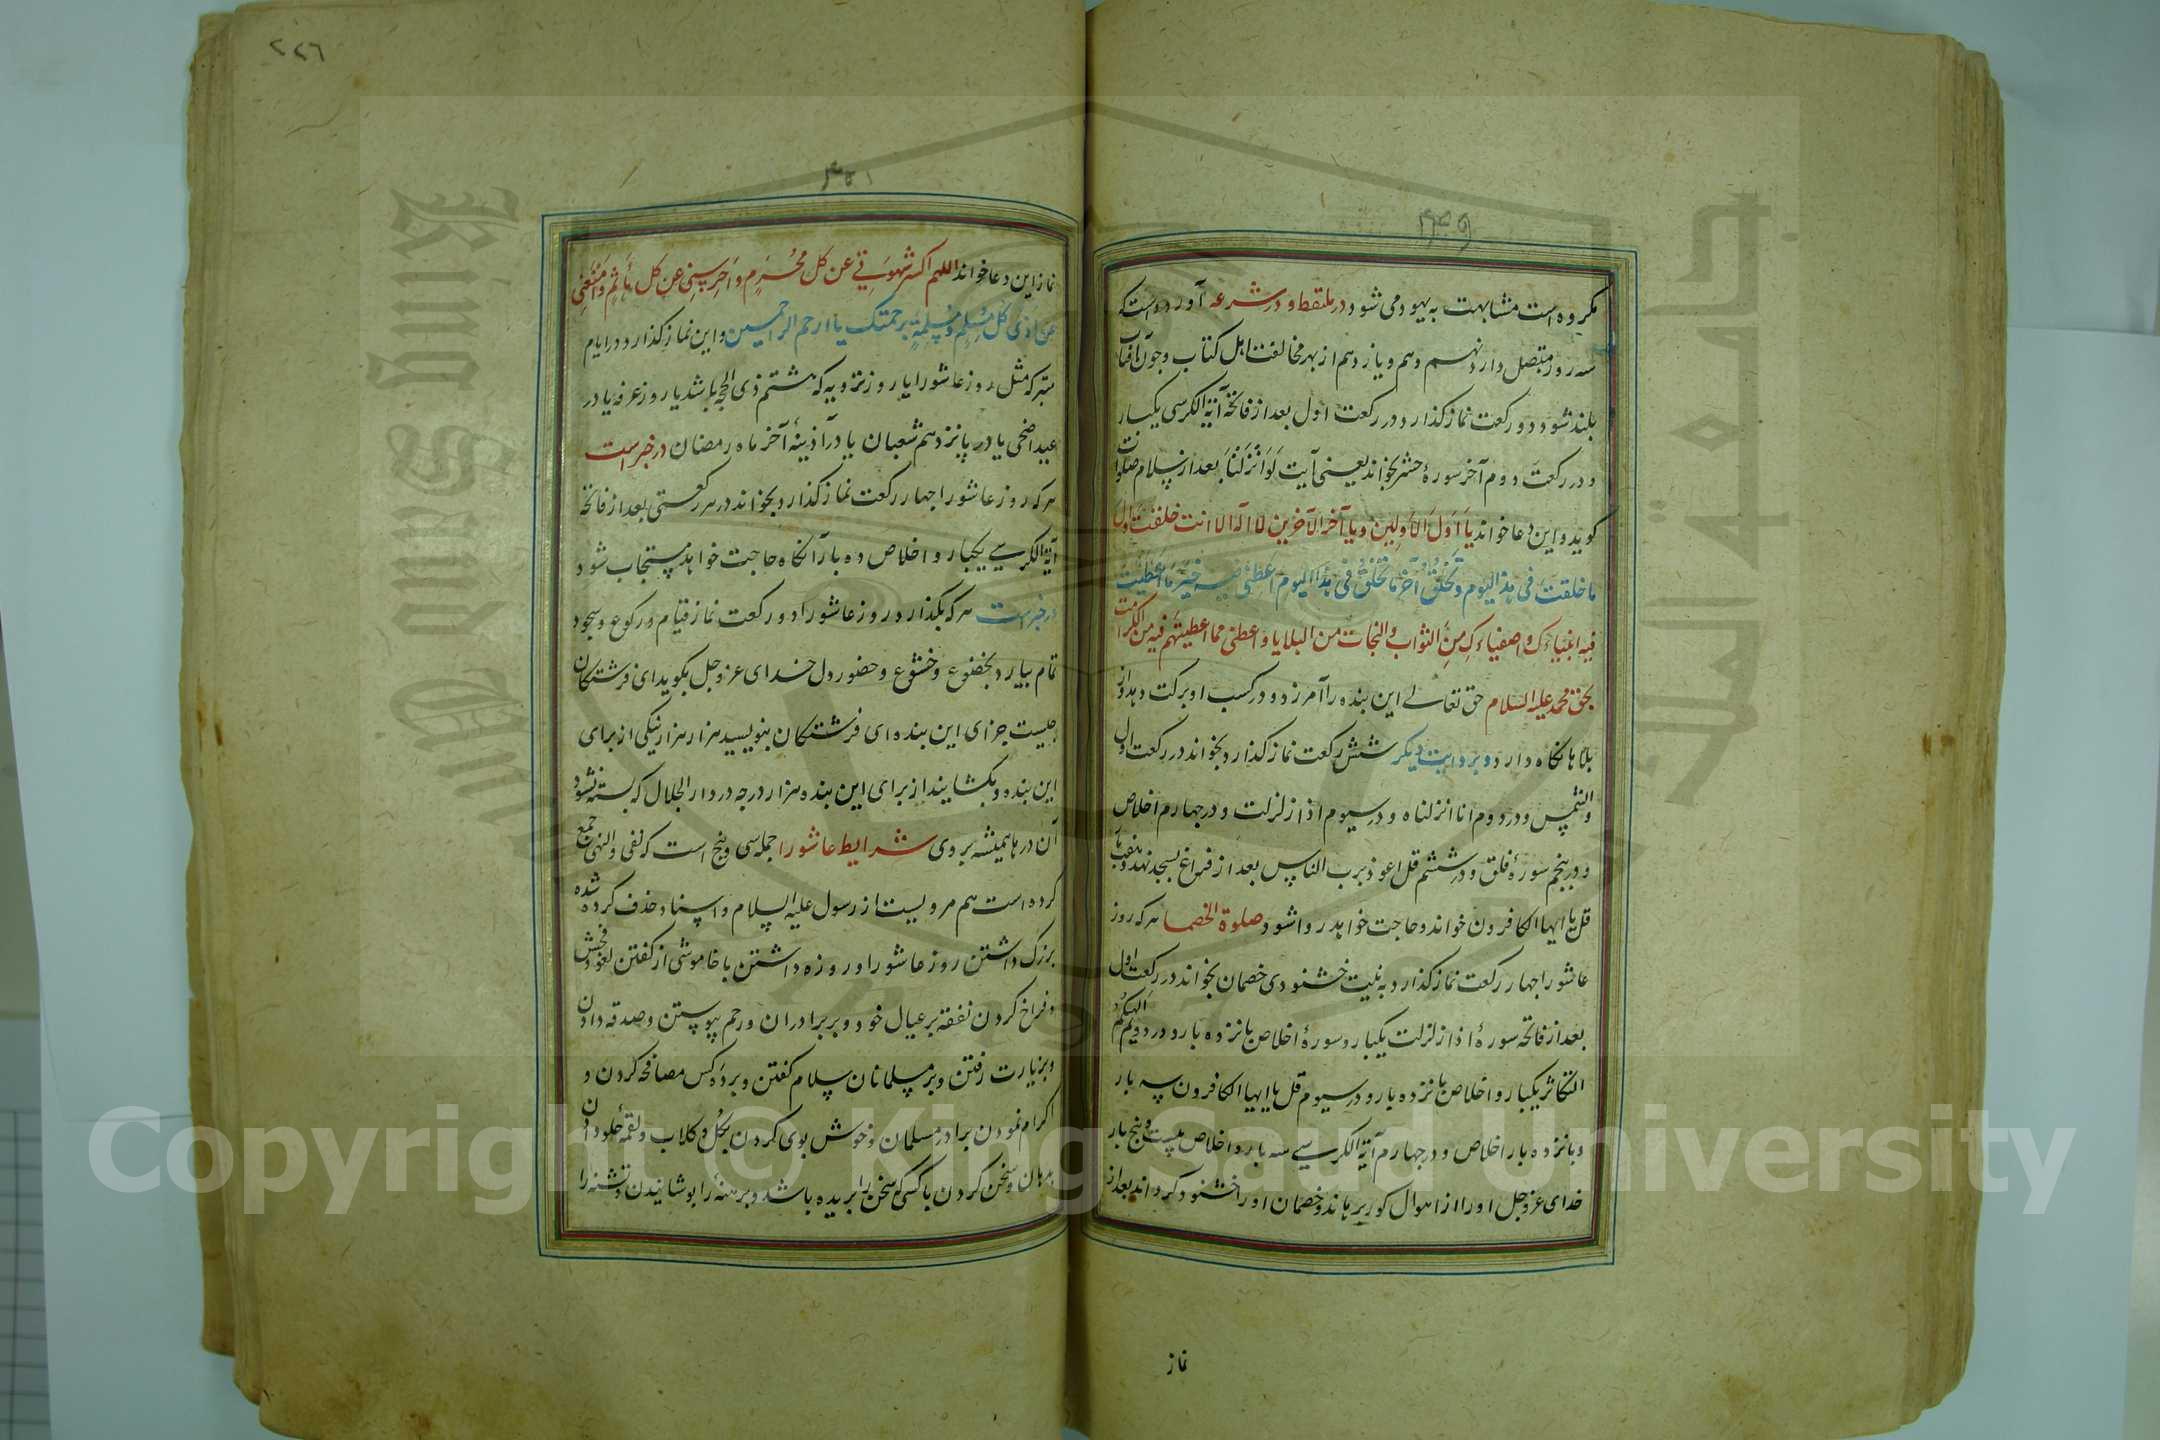 مکروه است مشابهت به یهود می شود در ملتقط و در شرعه آورده است که
سه روز متصل دارد نهم و دهم و یازدهم از بهر مخالفت اهل کتاب و چون آفتاب
بلند شود دو رکعت نماز گذارد در رکعت اول بعد از فاتحه آیة الکرسی یکبار
و در رکعت دوم آخر سورهٔ حشر بخواند یعنی آیت لَوْ اَنْزَلْنَا بعد از سلام صلوات
گوید و این دعا خواند یا اَوَّلَ الاَوَّلِینَ و یا آخر الآخرین لا اله الا انت خلقت اول
ما خلقت فی هذا الیوم و تخلق آخر ما تخلق فی هذا الیوم اعطنی فیه خیر ما اعطیت
فیه انبیاءک و اصفیاءک من الثواب و النجات من البلایا و اعطنی مما اعطیتهم فیه من الکرامت
بحق محمد علیه السلام حق تعالی این بنده را آمرزد و در کسب او برکت دهد و از
بلا ها نگاه دارد و بروایت دیگر شش رکعت نماز گذارد بخواند در رکعت اول
و الشمس و در دوم انا انزلناه و در سیوم اذا زلزلت و در چهارم اخلاص
و در پنجم سورهٔ فلق و در ششم قل اعوذ برب الناس بعد از فراغ بسجده نهد و هفت بار
قل یا ایها الکافرون خواند و حاجت خواهد روا شود صلوة الخصما هر که روز
عاشورا چهار رکعت نماز گذارد به نیت خشنودی خصمان بخواند در رکعت اول
بعد از فاتحه سورهٔ اذا زلزلت یکبار و سورهٔ اخلاص پانزده بار و در دویم الهیکم
التکاثر یکبار و اخلاص پانزده بار و در سیوم قل یا ایها الکافرون سه بار
و پانزده بار اخلاص و در چهارم آیة الکرسی سه بار و اخلاص بیست و پنج بار
خدای عز و جل او را از اهوال گور برهاند و خصمان او را خشنود گرداند بعد از
نماز
۲۲۶
نماز این دعا خواند اللهم اکسر شهوتی عن کل محرم و احرسنی عن کل مأثم و امنعنی
عن اذی کل مسلم و مسلمة برحمتک یا ارحم الراحمین و این نماز گذارد در ایام
متبرکه مثل روز عاشورا یا روز ترویه که هشتم ذی الحجه باشد یا روز عرفه یا در
عید اضحی یا در پانزدهم شعبان یا در آذینهٔ آخر ماه رمضان در خبر است
هر که روز عاشورا چهار رکعت نماز گذارد بخواند در هر رکعتی بعد از فاتحه
آیة الکرسی یکبار و اخلاص ده بار آنگاه حاجت خواهد مستجاب شود
در خبر است هر که بگذارد روز عاشورا دو رکعت نماز قیام و رکوع و سجود
تمام بیارد بخضوع و خشوع و حضور دل خدای عز و جل بگوید ای فرشتگان
چیست جزای این بنده ای فرشتگان بنویسید هزار هزار نیکی از برای
این بنده و بگشایند از برای این بنده هزار درجه در دار الجلال که بسته نشود
آن درها همیشه بر وی شرایط عاشورا جمله سی و پنج است که نفی و النهی جمع
کرده است هم مرویست از رسول علیه السلام و اسناد حذف کرده شده
بزرگ داشتن روز عاشورا و روزه داشتن با خاموشی از گفتن لغو و فحش
و فراخ کردن نفقه بر عیال خود و بر برادران و رحم پیوستن و صدقه دادن
و بزیارت رفتن و بر مسلمانان سلام گفتن و بر ده کس مصافحه کردن و
اکرام نمودن برادر مسلمان و خوش بوی کردن بگل و گلاب و لقمهٔ حلوا دادن
بدهان و سخن کردن با کسی که سخن را بریده باشد و برهنه را پوشانیدن و تشنه را
Copyright © King Saud University